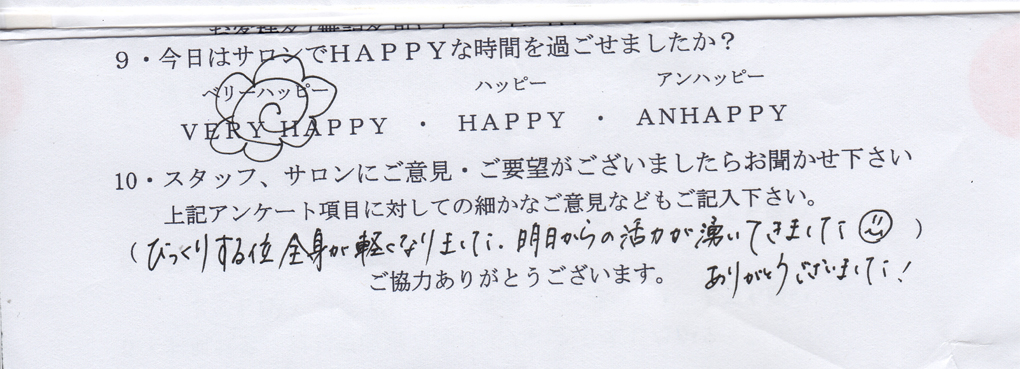 9・今日はサロンでHAPPYな時間を過ごせましたか？
ベリーハッピー ハッピー アンハッピー
VERY HAPPY ・ HAPPY ・ ANHAPPY
10・スタッフ、サロンにご意見・ご要望がございましたらお聞かせ下さい
上記アンケート項目に対しての細かなご意見などもご記入下さい。
(びっくりする位全身が軽くなりました、明日からの活力が湧いてきました)
ご協力ありがとうございます。 ありがとうございました！